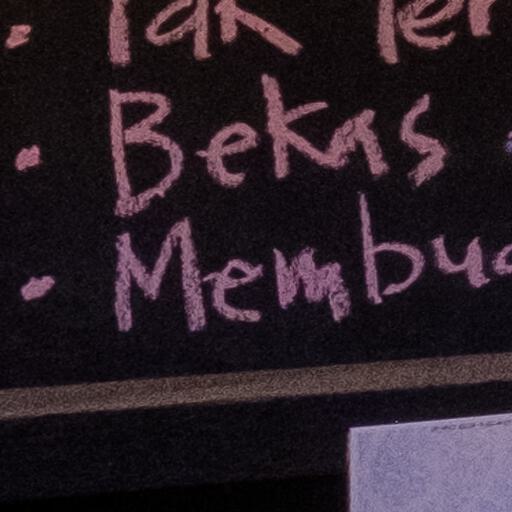 Tak Ter
Bekas
Membua